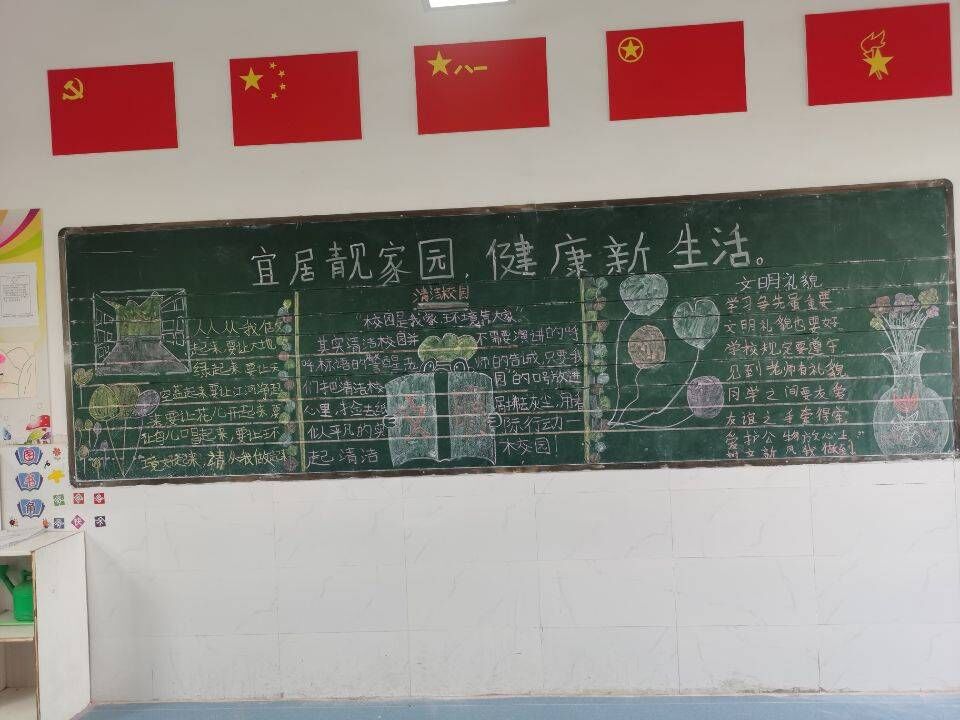 八一
宜居靓家园，健康新生活。
人人从我做
起来，要让大地
绿起来，要让天
空蓝起来，要让江河净起
来，要让花儿开起来，要
让鸟儿唱起来，要让环
境好起来，请从我做起
清洁校园
"校园是我家，环境靠大家"
其实清洁校园并不需要演讲的呼
们把清洁校园"的口号放进
心里，
似平凡的实际行动一
起，清洁校园！
文明礼貌
学习争先虽重要
文明礼貌也要好
学校规定要遵守
见到老师有礼貌
同学之间要友爱
友谊之手牵得牢
爱护公物放心上
图
书
角